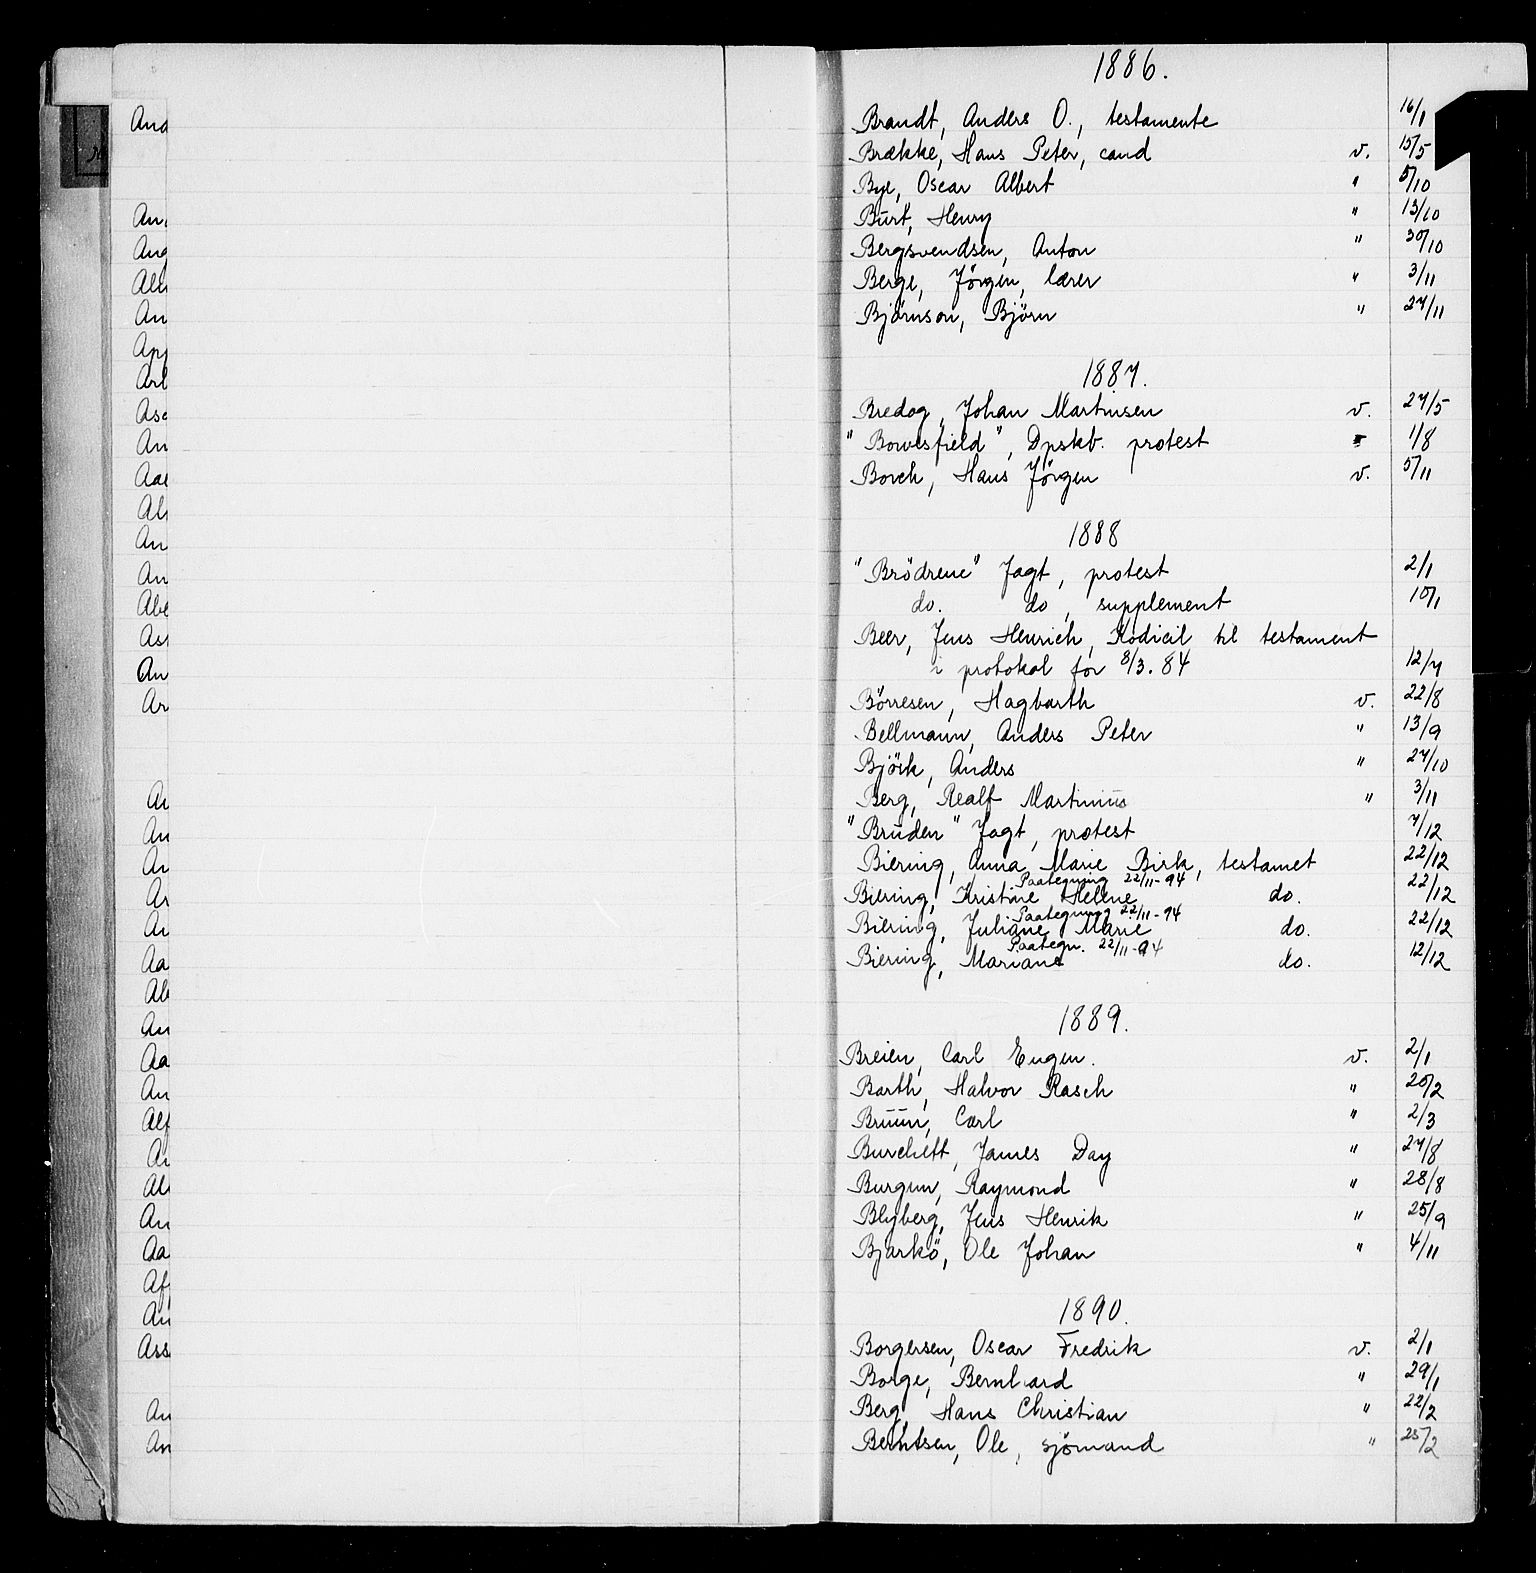 And
An
Ang
Al
An
App
Arl
Asc
An
Aae
Al
An
An
Abe
Ass
An
Ar
A
An
An
Ar
A
Aa
Al
An
Aa
An
Alf
A
Al
An
Aa
Af
An
Ass
An
An
1886.
Brandt, Anders O., testamente 16/1
Brække, Hans Peter, cand v. 15/5
Bye, Oscar Albert " 5/10
Burt, Henry " 13/10
Bergsvendsen, Anton " 30/10
Berge, Jörgen, lærer " 3/11
Björnson, Björn " 27/11
1887.
Bredog, Johan Martinsen v. 27/5
"Bowesfield", Dpskb. protest 1/8
Borch, Hans Jörgen v. 5/11
1888
"Brödrene" Jagt, protest 2/1
do. do, supplement 10/1
Beer, Jens Henrich, Kodicil til testament
i protokol for 8/3.84 12/7
Börresen, Hagbarth v. 22/8
Bellmann, Anders Peter " 13/9
Björk, Anders " 27/10
Berg, Realf Martinius " 3/11
"Bruden" Jagt, protest 7/12
Biering, Anna Marie Birk, testamet 22/12
Paategning 22/11-94
Biering, Kristine Helene do. 22/12
Paategning 22/11-94
Biering, Juliane Marie do. 22/12
Paategn. 22/11-94
Biering, Mariane do. 12/12
1889.
Breien, Carl Eugen. v. 2/1
Barth, Halvor Rasch " 20/2
Bruun, Carl " 2/3
Burchett, James Day " 27/8
Burgun, Raymond " 28/8
Blyberg, Jens Henrik " 25/9
Bjarkö, Ole Johan " 4/11
1890.
Borgersen, Oscar Fredrik v. 2/1
Borge, Bernhard " 29/1
Berg, Hans Christian " 22/2
Berntsen, Ole, sjömand " 25/2